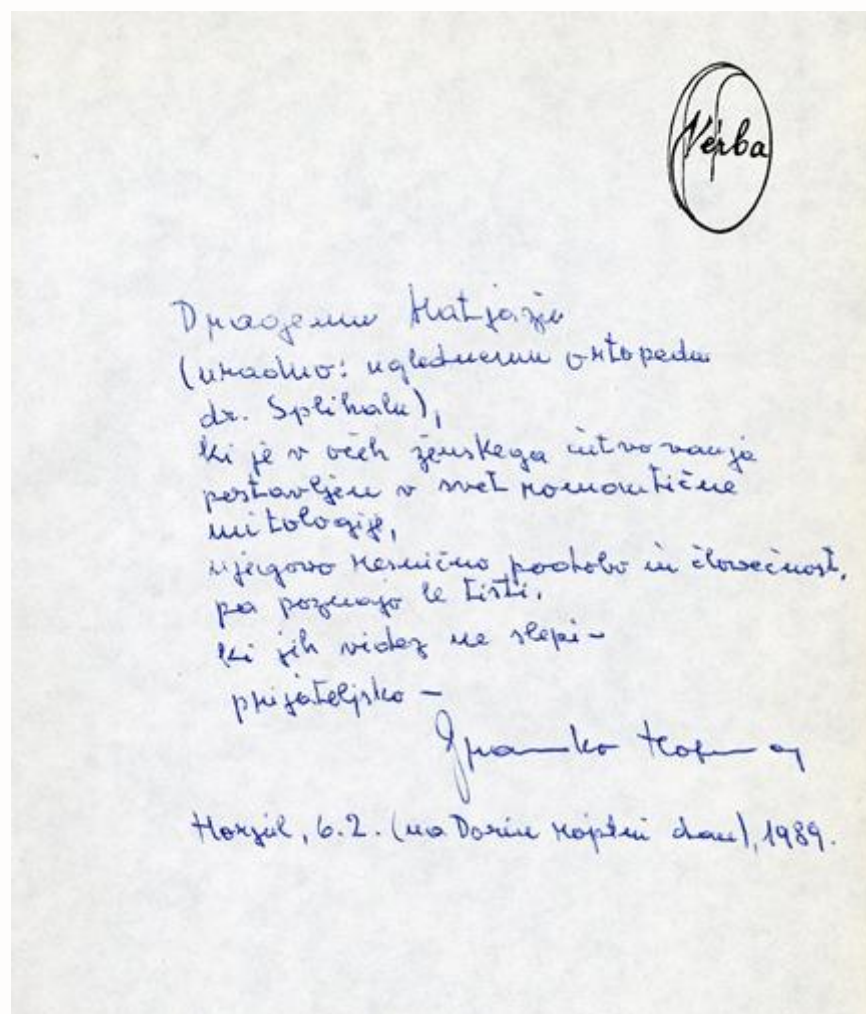 Verba
Dragemu Matjažu
(uradno: uglednemu ortopedu
dr. Splihalu),
ki je v očeh ženskega
postavljen v svet romantične
mitologije,
njegovo resnično podobo in človečnost,
pa poznajo le tisti,
ki jih videz ne slepi –
prijateljsko –
Branko Hofman
Horjul, 6.2. (na Dorin rojstni dan), 1989.